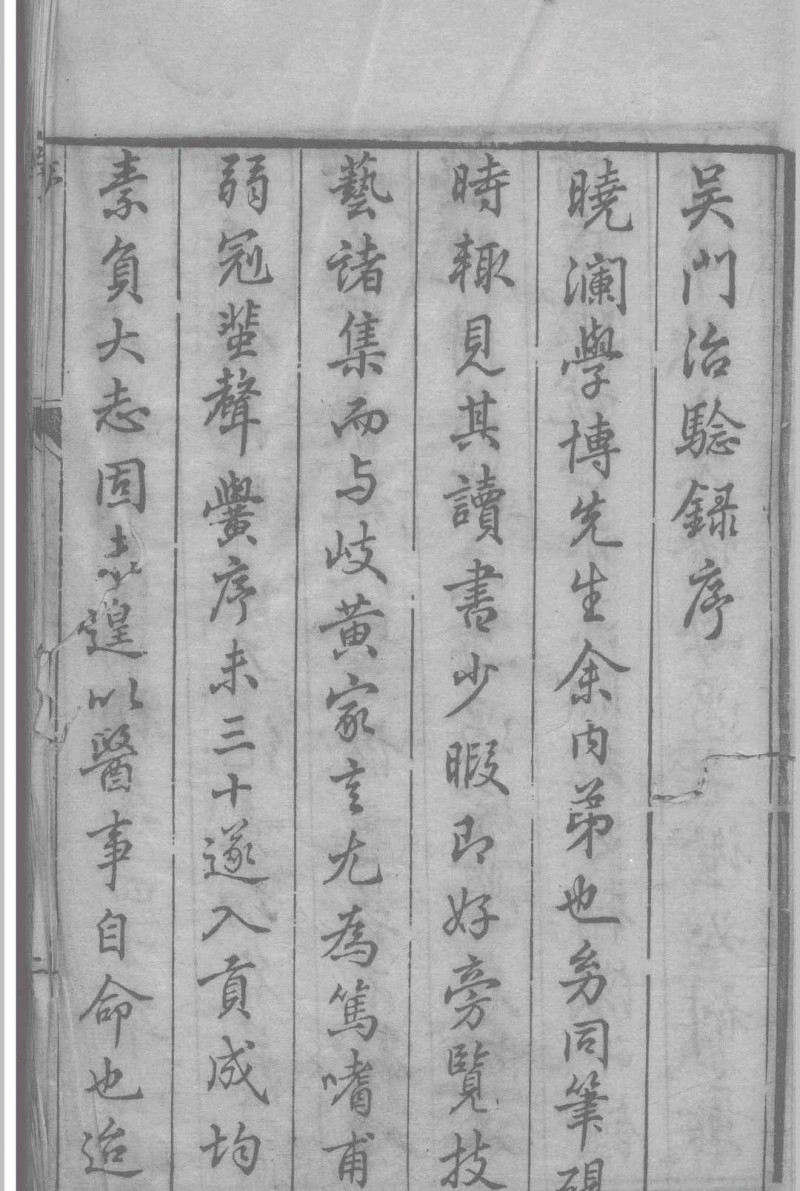 吴門治驗録序
曉瀾學博先生余内弟也㓜同筆硯
時輙見其讀書少暇即好旁覽技
藝諸集而与岐黄家言尤為篤嗜甫
弱冠蜚聲黌序未三十遂入貢成均
素負大志固未遑以醫事自命也迨